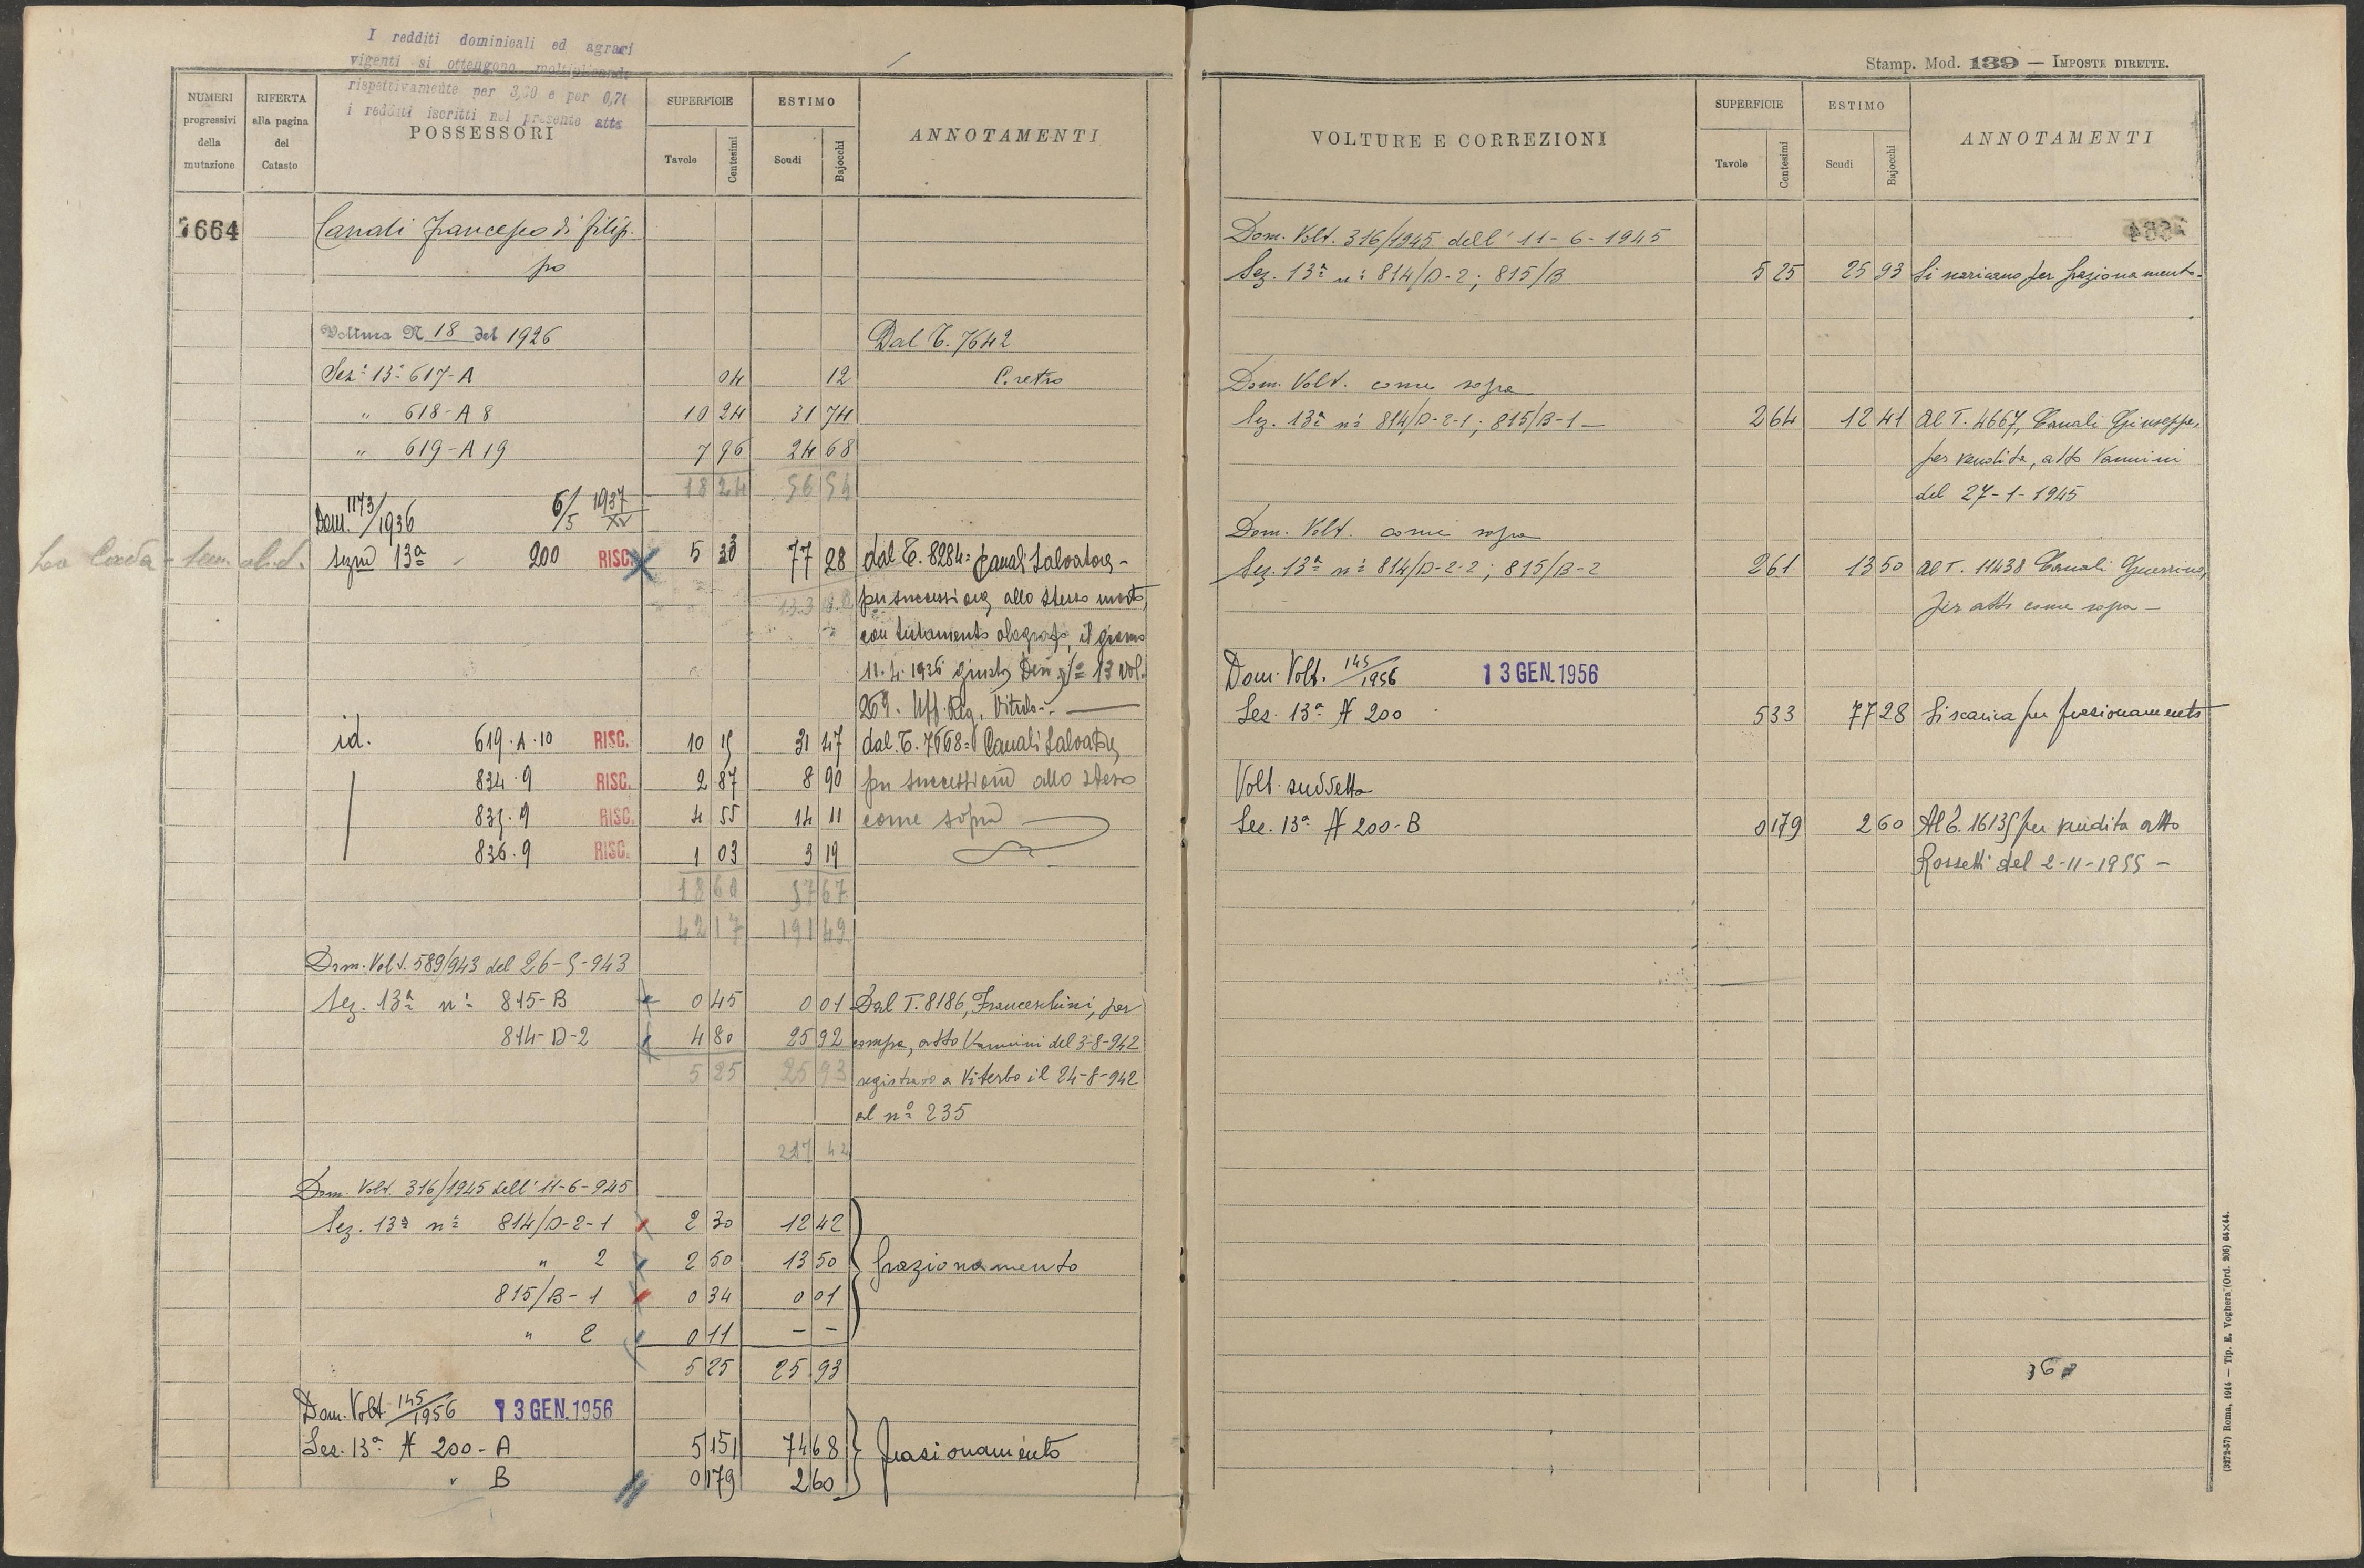 I redditi dominicali ed agrari
vigenti si ottengono moltiplicando
rispettivamente per 3,20 e per 0,71
i redditi iscritti nel presente atto
NUMERI progressivi della mutazione
RIFERTA alla pagina del Catasto
POSSESSORI
SUPERFICIE
Tavole Centesimi
ESTIMO
Scudi Bajocchi
ANNOTAMENTI
7664 Canali Francesco di Filip-
po
Voltura N 18 del 1926 Dal T. 7642
Sez. 13ª 617-A 04 12 P. retro
" 618-A 8 10 24 31 74
" 619-A 19 7 96 24 68
18 24 56 54
Dom. 1173/1936 6/5 1937 XV
sezne 13ª 200 RISC. 5 33 77 28 dal T. 8284 = Canali Salvatore -
per successione allo stesso morto,
con testamento olografo, il giorno
11.4.1936 giusta Den. 13 vol.
269. Uff. Reg. Viterbo -
id. 619.A.10 RISC. 10 15 31 47 dal T. 7668 = Canali Salvatore
834.9 RISC. 2 87 8 90 per successione allo stesso
835.9 RISC. 4 55 14 11 come sopra
836.9 RISC. 1 03 3 19
18 60 57 67
42 17 191 49
Dom. Volt. 589/943 del 26-5-943
Sez. 13ª nⁱ 815-B 0 45 0 01 Dal T. 8186, Franceschini, per
814-D-2 4 80 25 92 compra, atto Vannini del 3-8-942
5 25 25 93 registrato a Viterbo il 24-8-942
al nº 235
217 42
Dom. Volt. 316/1945 dell' 11-6-945
Sez. 13ª nⁱ 814/D-2-1 2 30 12 42
" 2 2 50 13 50 frazionamento
815/B-1 0 34 0 01
" 2 0 11 - -
5 25 25 93
Dom. Volt. 145/1956 13 GEN. 1956
Sez. 13ª N 200-A 5 151 74 68 frazionamento
" B 0 179 2 60
Stamp. Mod. 139 — IMPOSTE DIRETTE.
VOLTURE E CORREZIONI
SUPERFICIE
Tavole Centesimi
ESTIMO
Scudi Bajocchi
ANNOTAMENTI
Dom. Volt. 316/1945 dell' 11-6-1945
Sez. 13ª nⁱ 814/D-2; 815/B 5 25 25 93 Si scaricano per frazionamento.
Dom. Volt. come sopra
Sez. 13ª nⁱ 814/D-2-1; 815/B-1 - 2 64 12 41 Al T. 4667, Canali Giuseppe,
per vendita, atto Vannini
del 27-1-1945
Dom. Volt. come sopra
Sez. 13ª nⁱ 814/D-2-2; 815/B-2 2 61 13 50 Al T. 11438 Canali Guerrino,
per atto come sopra -
Dom. Volt. 145/1956 13 GEN. 1956
Sez. 13ª N 200 5 33 77 28 Si scarica per frazionamento
Volt. suddetta
Sez. 13ª N 200-B 0 179 2 60 Al T. 16135 per vendita atto
Rossetti del 2-11-1955 -
(3272-57) Roma, 1914 — Tip. E. Voghera (Ord. 206) 64×44.